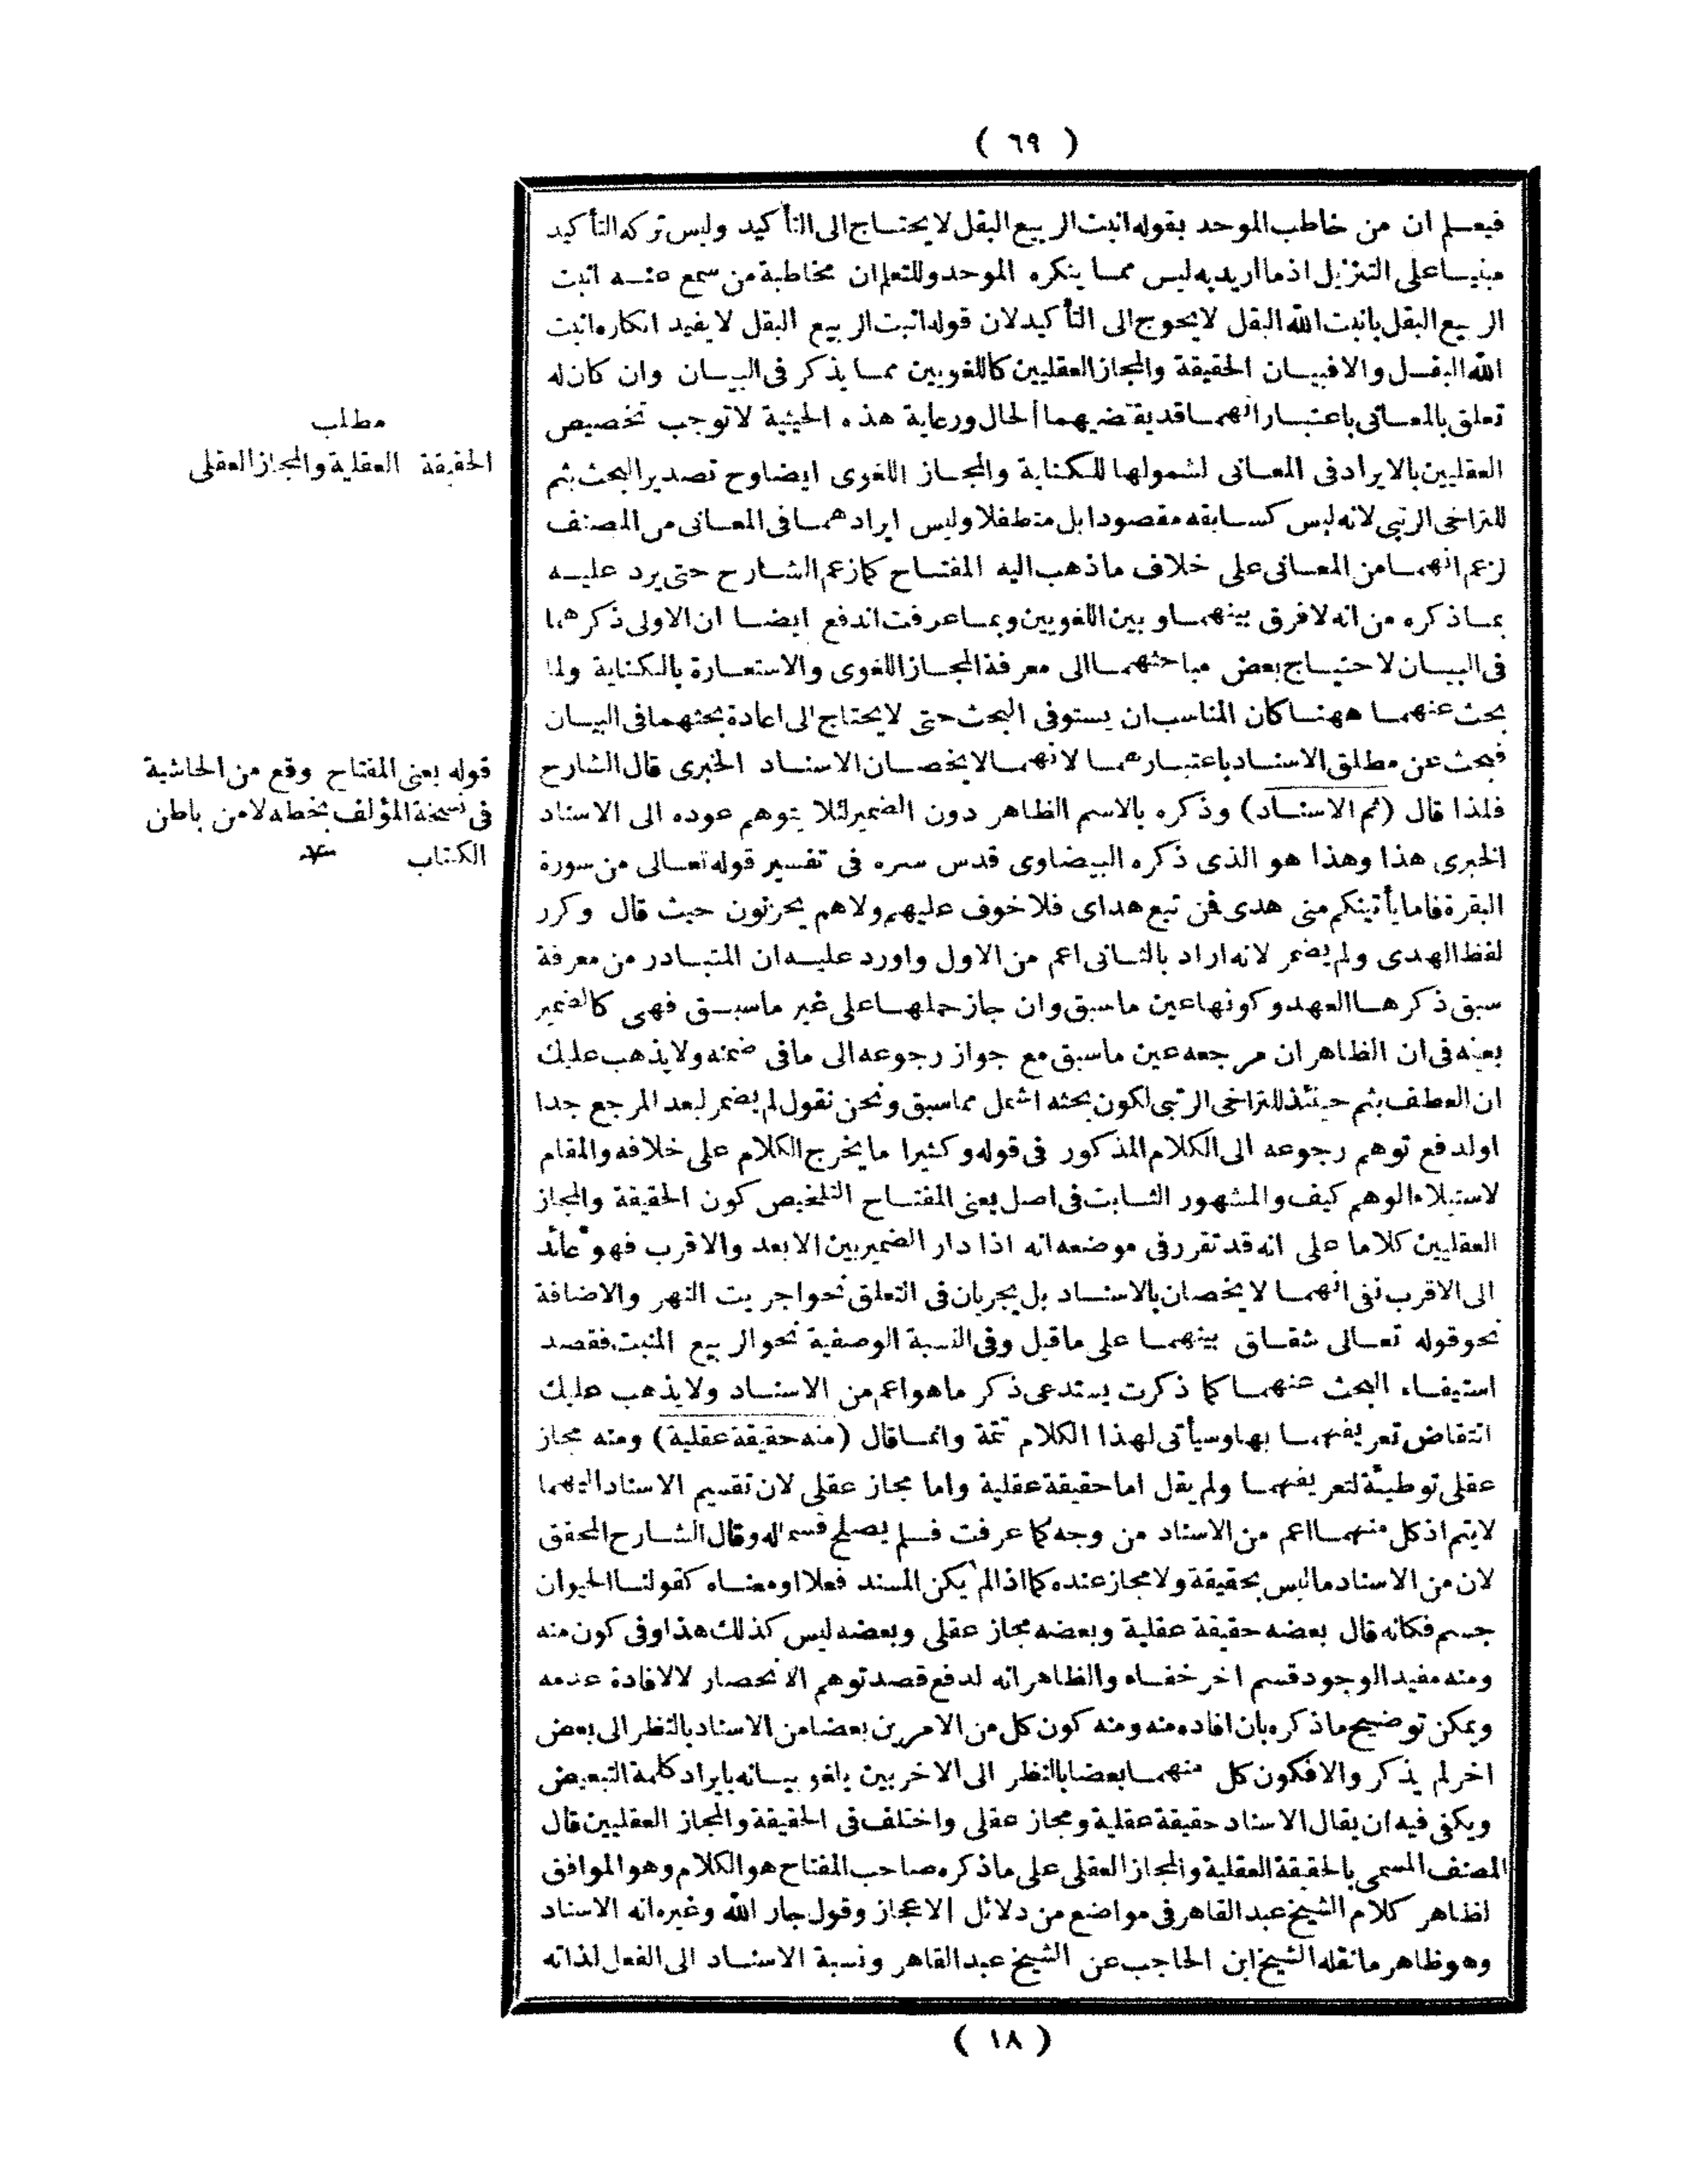 ( ٦٩ )
فيعلم ان من خاطب الموحد بقوله انبت الربيع البقل لا يحتاج الى التأكيد وليس تركه التأكيد
مبنيا على التنزيل اذ ما اريد به ليس مما ينكره الموحد وللتعلم ان مخاطبة من سمع عنه انبت
الربيع البقل بانبت الله البقل لا يحوج الى التأكيد لان قوله انبت الربيع البقل لا يفيد انكاره انبت
الله البقل والا فبيان الحقيقة والمجاز العقليين كاللغويين مما يذكر فى البيان وان كان له
تعلق بالمعانى باعتبار انهما قد يقتضيهما الحال ورعاية هذه الحيثية لا توجب تخصيص
العقليين بالايراد فى المعانى لشمولها للكناية والمجاز اللغوى ايضا وح تصدير البحث بثم
للتراخى الرتبى لانه ليس كسابقه مقصودا بل متطفلا وليس ايرادهما فى المعانى من المصنف
لزعم انهما من المعانى على خلاف ما ذهب اليه المفتاح كما زعم الشارح حتى يرد عليه
بما ذكره من انه لا فرق بينهما وبين اللغويين وبما عرفت اندفع ايضا ان الاولى ذكرهما
فى البيان لاحتياج بعض مباحثهما الى معرفة المجاز اللغوى والاستعارة بالكناية ولما
بحث عنهما ههنا كان المناسب ان يستوفى البحث حتى لا يحتاج الى اعادة بحثهما فى البيان
فبحث عن مطلق الاسناد باعتبارهما لانهما لا يخصان الاسناد الخبرى قال الشارح
فلذا قال (ثم الاسناد) وذكره بالاسم الظاهر دون الضمير لئلا يتوهم عوده الى الاسناد
الخبرى هذا وهذا هو الذى ذكره البيضاوى قدس سره فى تفسير قوله تعالى من سورة
البقرة فاما يأتينكم منى هدى فمن تبع هداى فلا خوف عليهم ولا هم يحزنون حيث قال وكرر
لفظ الهدى ولم يضمر لانه اراد بالثانى اعم من الاول واورد عليه ان المتبادر من معرفة
سبق ذكرها العهد وكونها عين ما سبق وان جاز حملها على غير ما سبق فهى كالضمير
بعينه فى ان الظاهر ان مرجعه عين ما سبق مع جواز رجوعه الى ما فى ضمنه ولا يذهب عليك
ان العطف بثم حينئذ للتراخى الرتبى لكون بحثه اشمل مما سبق ونحن نقول لم يضمر لبعد المرجع جدا
اولدفع توهم رجوعه الى الكلام المذكور فى قوله وكثيرا ما يخرج الكلام على خلافه والمقام
لاستيلاء الوهم كيف والمشهور الثابت فى اصل يعنى المفتاح التلخيص كون الحقيقة والمجاز
العقليين كلاما على انه قد تقرر فى موضعه انه اذا دار الضمير بين الابعد والاقرب فهو عائد
الى الاقرب نفى انهما لا يخصان بالاسناد بل يجريان فى التعلق نحو اجريت النهر والاضافة
نحو قوله تعالى شقاق بينهما على ما قيل وفى النسبة الوصفية نحو الربيع المنبت فقصد
استيفاء البحث عنهما كما ذكرت يستدعى ذكر ما هو اعم من الاسناد ولا يذهب عليك
انتقاض تعريفهما بها وسيأتى لهذا الكلام تتمة وانما قال (منه حقيقة عقلية) ومنه مجاز
عقلى توطئة لتعريفهما ولم يقل اما حقيقة عقلية واما مجاز عقلى لان تقسيم الاسناد اليهما
لا يتم اذ كل منهما اعم من الاسناد من وجه كما عرفت فلم يصلح قسما له وقال الشارح المحقق
لان من الاسناد ما ليس بحقيقة ولا مجاز عنده كما اذا لم يكن المسند فعلا او معناه كقولنا الحيوان
جسم فكانه قال بعضه حقيقة عقلية وبعضه مجاز عقلى وبعضه ليس كذلك هذا وفى كون منه
ومنه مفيد الوجود قسم اخر خفاء والظاهر انه لدفع قصد توهم الانحصار لا لافادة عدمه
ويمكن توضيح ما ذكره بان افاده منه ومنه كون كل من الامرين بعضا من الاسناد بالنظر الى بعض
اخر لم يذكر والا فكون كل منهما بعضا بالنظر الى الاخر بين يلغو بيانه بايراد كلمة التبعيض
ويكفى فيه ان يقال الاسناد حقيقة عقلية ومجاز عقلى واختلف فى الحقيقة والمجاز العقليين قال
المصنف المسمى بالحقيقة العقلية والمجاز العقلى على ما ذكره صاحب المفتاح هو الكلام وهو الموافق
لظاهر كلام الشيخ عبد القاهر فى مواضع من دلائل الاعجاز وقول جار الله وغيره انه الاسناد
وهو ظاهر ما نقله الشيخ ابن الحاجب عن الشيخ عبد القاهر ونسبة الاسناد الى الفعل لذاته
( ١٨ )
مطلب
الحقيقة العقلية والمجاز العقلى
قوله يعنى المفتاح وقع من الحاشية
فى نسخة المؤلف بخطه لا من باطن
الكتاب